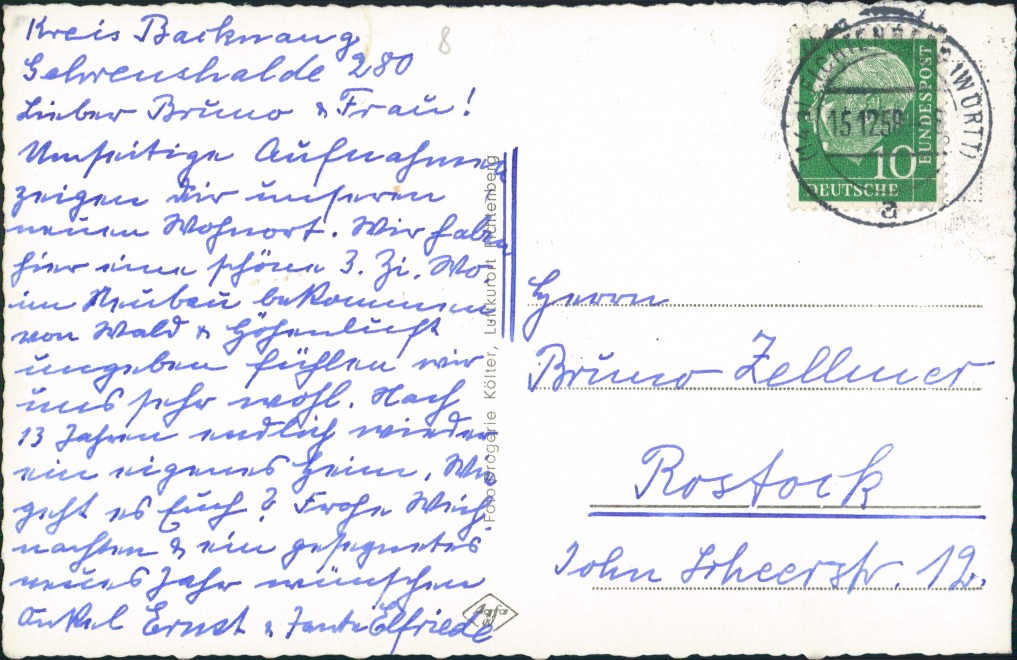 Kreis Backnang
Gehrenshalde 280
Lieber Bruno & Frau!
Umseitige Aufnahmen
zeigen Dir unseren
neuen Wohnort. Wir haben
hier eine schöne 3. Zi. Wo.
im Neubau bekommen
von Wald & Höhenluft
umgeben fühlen wir
uns sehr wohl. Nach
13 Jahren endlich wieder
ein eigenes Heim. Wie
geht es Euch? Frohe Weih-
nachten & ein gesegnetes
neues Jahr wünschen
Onkel Ernst & Tante Elfriede
8
Fotodrogerie Költer, Luftkurort
Agfa
(WÜRTT)
15.12.58
a
10
DEUTSCHE
BUNDESPOST
Herrn
Bruno Zellmer
Rostock
John Scheerstr. 12.